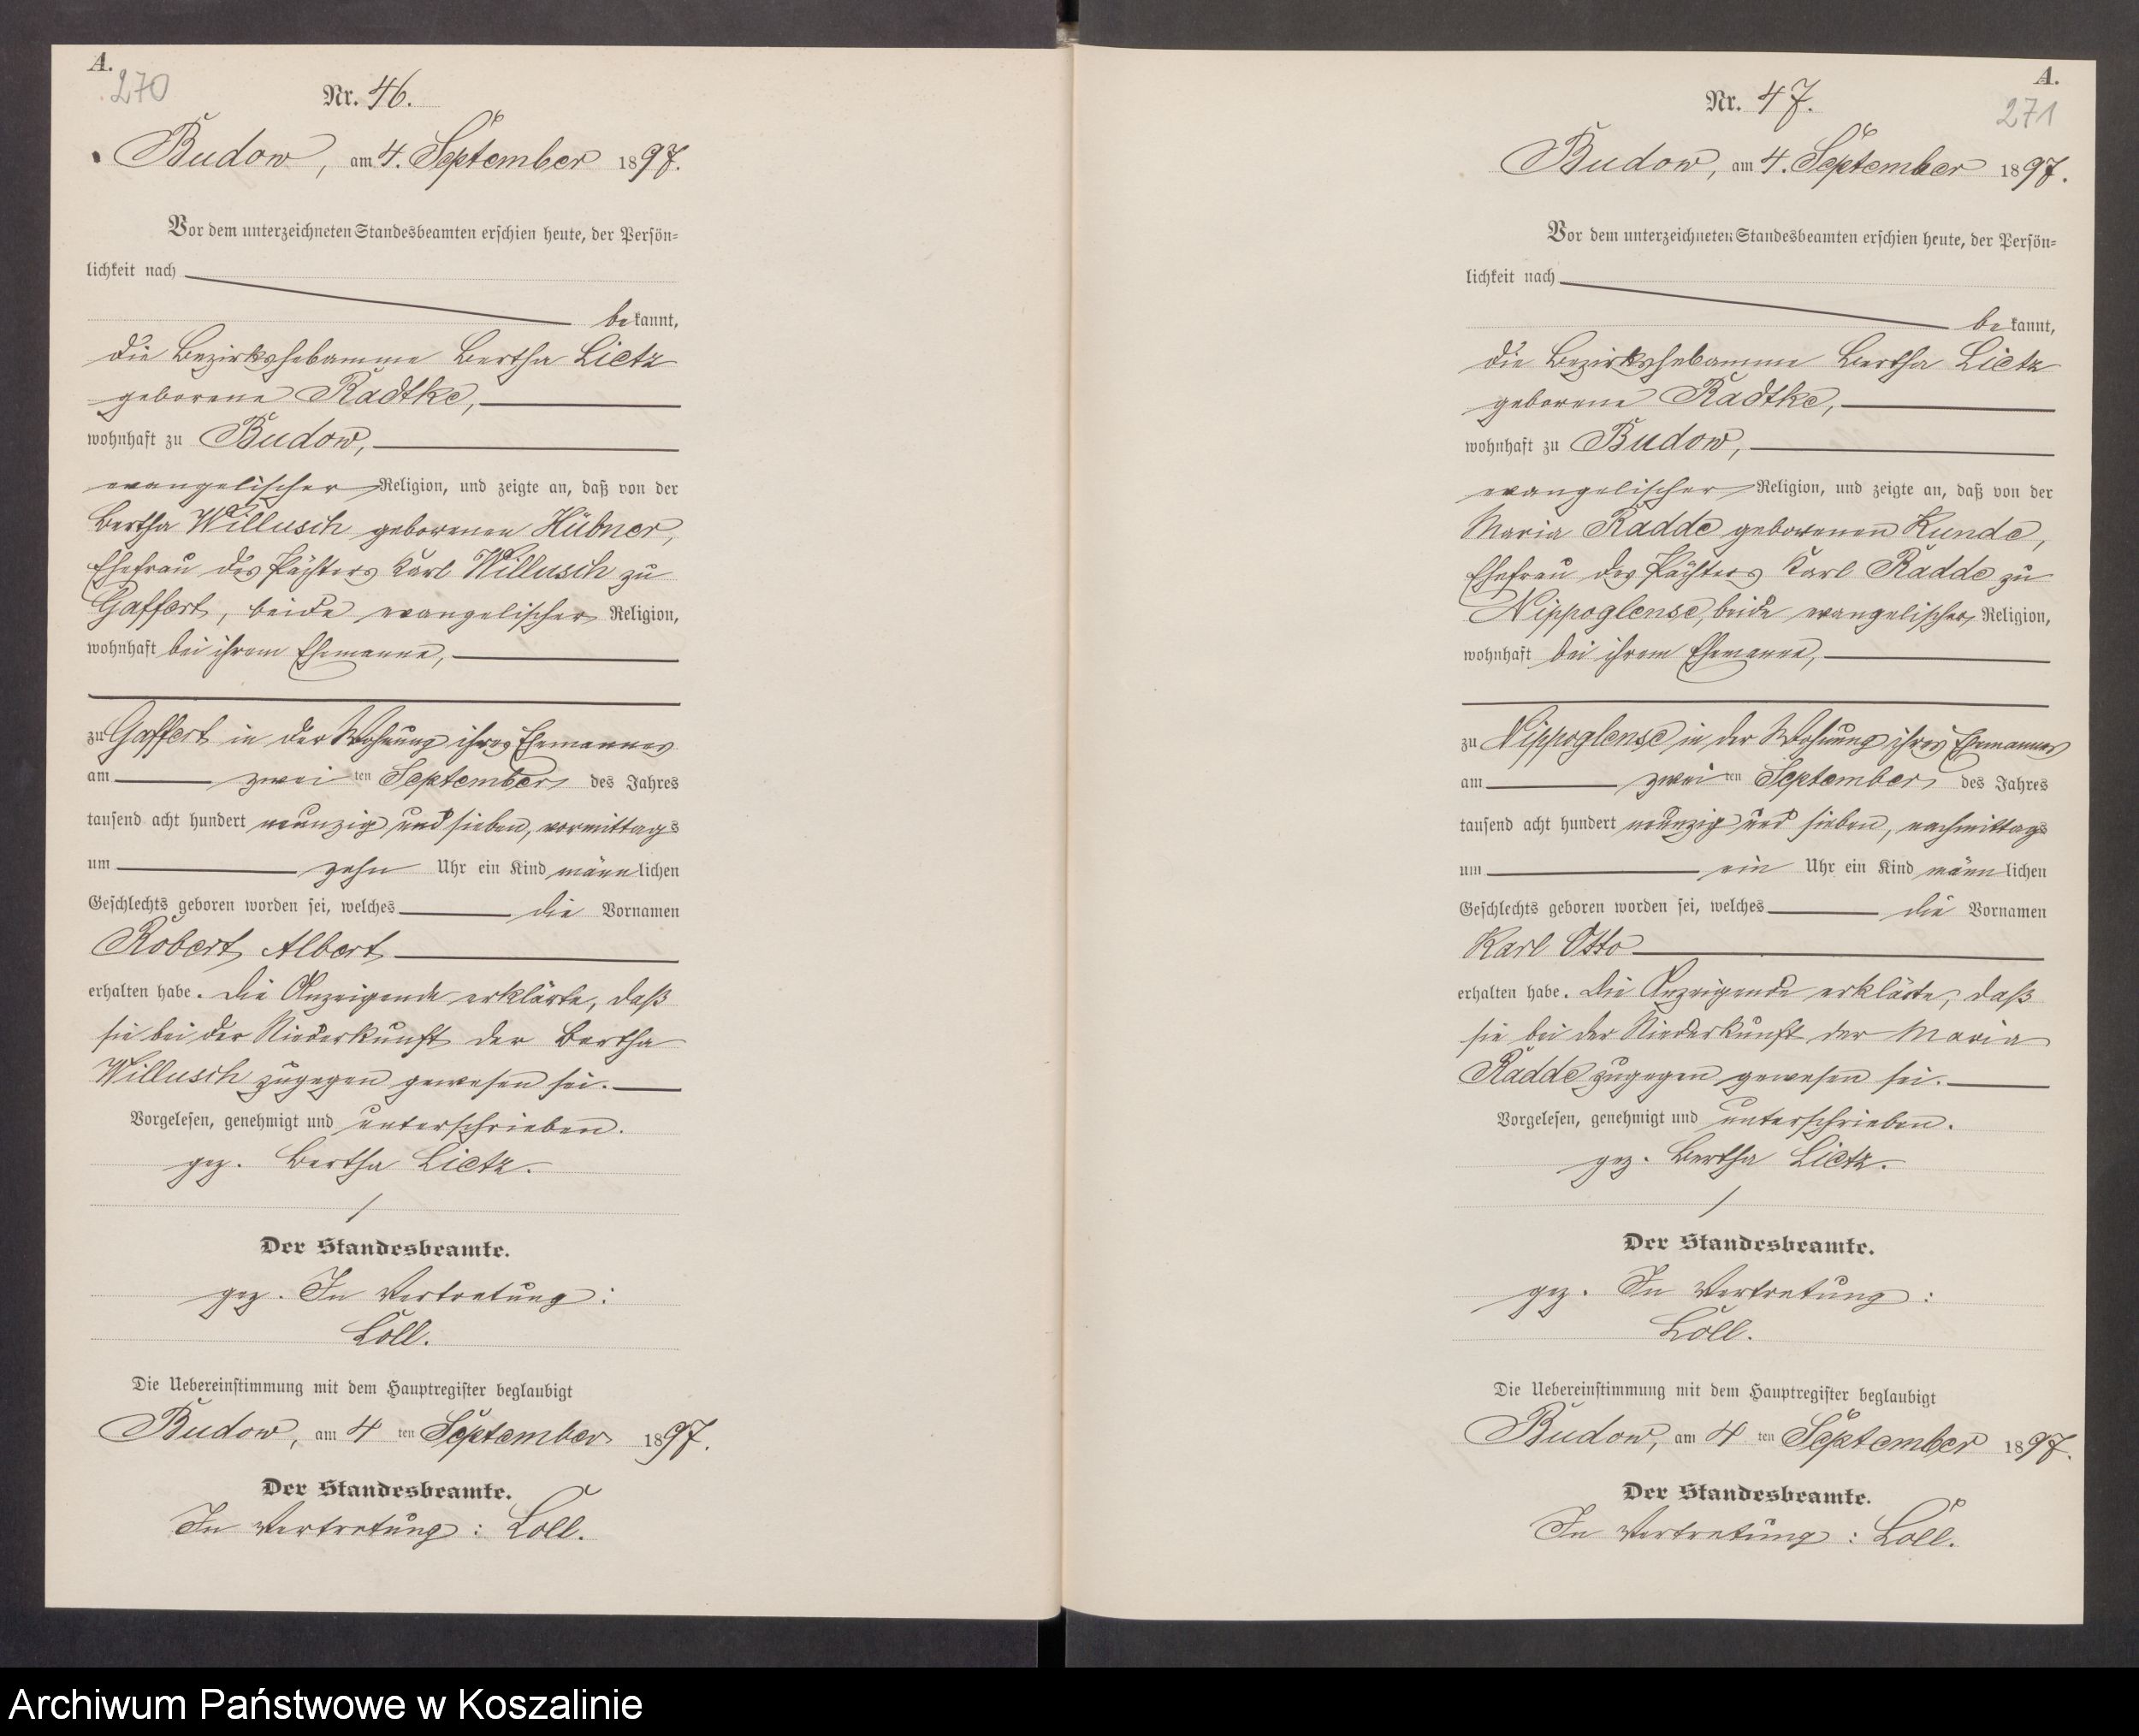 A.
270
Nr. 46.
Budow, am 4. September 1897.
Vor dem unterzeichneten Standesbeamten erschien heute, der Persön-
lichkeit nach
bekannt,
die Bezirkshebamme Bertha Lietz
geborene Radtke,
wohnhaft zu Budow,
evangelischer Religion, und zeigte an, daß von der
Bertha Willusch geborenen Hübner,
Ehefrau des Pächters Karl Willusch zu
Gaffert, beide evangelischer Religion,
wohnhaft bei ihrem Ehemanne,
zu Gaffert in der Wohnung ihres Ehemannes
am zwei ten September des Jahres
tausend acht hundert neunzig und sieben, vormittags
um zehn Uhr ein Kind männlichen
Geschlechts geboren worden sei, welches die Vornamen
Robert Albert
erhalten habe. Die Anzeigende erklärte, daß
sie bei der Niederkunft der Bertha
Willusch zugegen gewesen sei.
Vorgelesen, genehmigt und unterschrieben.
gez. Bertha Lietz.
Der Standesbeamte.
gez. In Vertretung:
Loll.
Die Uebereinstimmung mit dem Hauptregister beglaubigt
Budow, am 4 ten September 1897.
Der Standesbeamte.
In Vertretung: Loll.
A.
271
Nr. 47.
Budow, am 4. September 1897.
Vor dem unterzeichneten Standesbeamten erschien heute, der Persön-
lichkeit nach
bekannt,
die Bezirkshebamme Bertha Lietz
geborene Radtke,
wohnhaft zu Budow,
evangelischer Religion, und zeigte an, daß von der
Maria Radde geborenen Kunde,
Ehefrau des Pächters Karl Radde zu
Nippoglense, beide evangelischer Religion,
wohnhaft bei ihrem Ehemanne,
zu Nippoglense in der Wohnung ihres Ehemannes
am zwei ten September des Jahres
tausend acht hundert neunzig und sieben, nachmittags
um ein Uhr ein Kind männlichen
Geschlechts geboren worden sei, welches die Vornamen
Karl Otto
erhalten habe. Die Anzeigende erklärte, daß
sie bei der Niederkunft der Maria
Radde zugegen gewesen sei.
Vorgelesen, genehmigt und unterschrieben.
gez. Bertha Lietz.
Der Standesbeamte.
gez. In Vertretung:
Loll.
Die Uebereinstimmung mit dem Hauptregister beglaubigt
Budow, am 4 ten September 1897.
Der Standesbeamte.
In Vertretung: Loll.
Archiwum Państwowe w Koszalinie